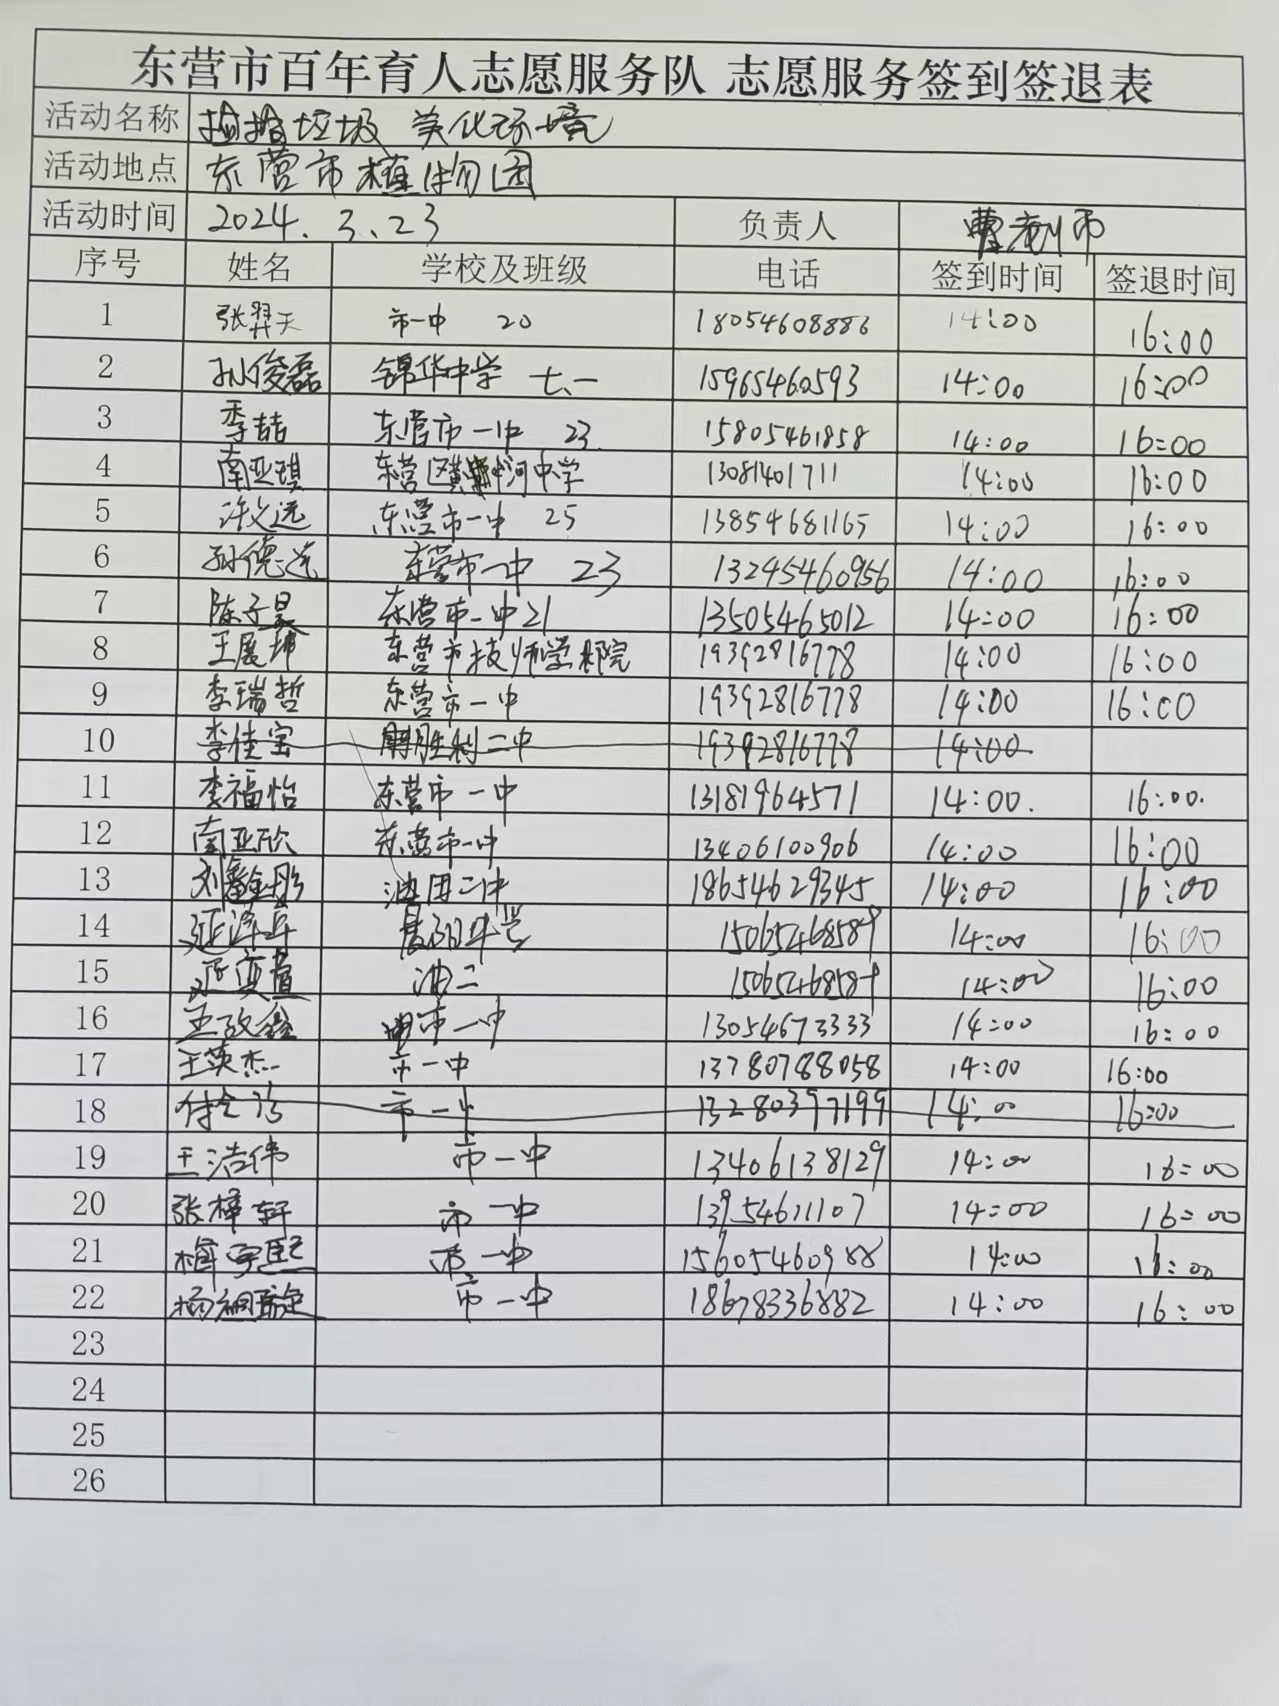 东营市百年育人志愿服务队 志愿服务签到签退表
活动名称 捡拾垃圾 美化环境
活动地点 东营市植物园
活动时间 2024.3.23 负责人 曹
序号 姓名 学校及班级 电话 签到时间 签退时间
1 张羿天 市一中 20 18054608886 14:00 16:00
2 孙俊磊 锦华中学 七.一 15965460593 14:00 16:00
3 季喆 东营市一中 23 15805461858 14:00 16:00
4 南亚琪 东营区黄河中学 13081401711 14:00 16:00
5 许文远 东营市一中 25 13854681165 14:00 16:00
6 孙德 东营市一中 23 13245460956 14:00 16:00
7 陈子昊 东营市一中21 13505465012 14:00 16:00
8 王展坤 东营市技师学院 19392816778 14:00 16:00
9 李瑞哲 东营市一中 19392816778 14:00 16:00
10 李佳宝 胜利二中 19392816778 14:00
11 李福怡 东营市一中 13181964571 14:00. 16:00.
12 南亚欣 东营市一中 13406100906 14:00 16:00
13 刘 油田二中 18654629345 14:00 16:00
14 延泽 15065468589 14:00 16:00
15 油二 15065468589 14:00 16:00
16 王政鑫 市一中 13054673333 14:00 16:00
17 王英杰 市一中 13780788058 14:00 16:00
18 付 市一中 13280397199 14:00 16:00
19 王浩伟 市一中 13406138129 14:00 16:00
20 张梓轩 市一中 13954611107 14:00 16:00
21 宇熙 市一中 15605460988 14:00 16:00
22 杨 市一中 18678336882 14:00 16:00
23
24
25
26